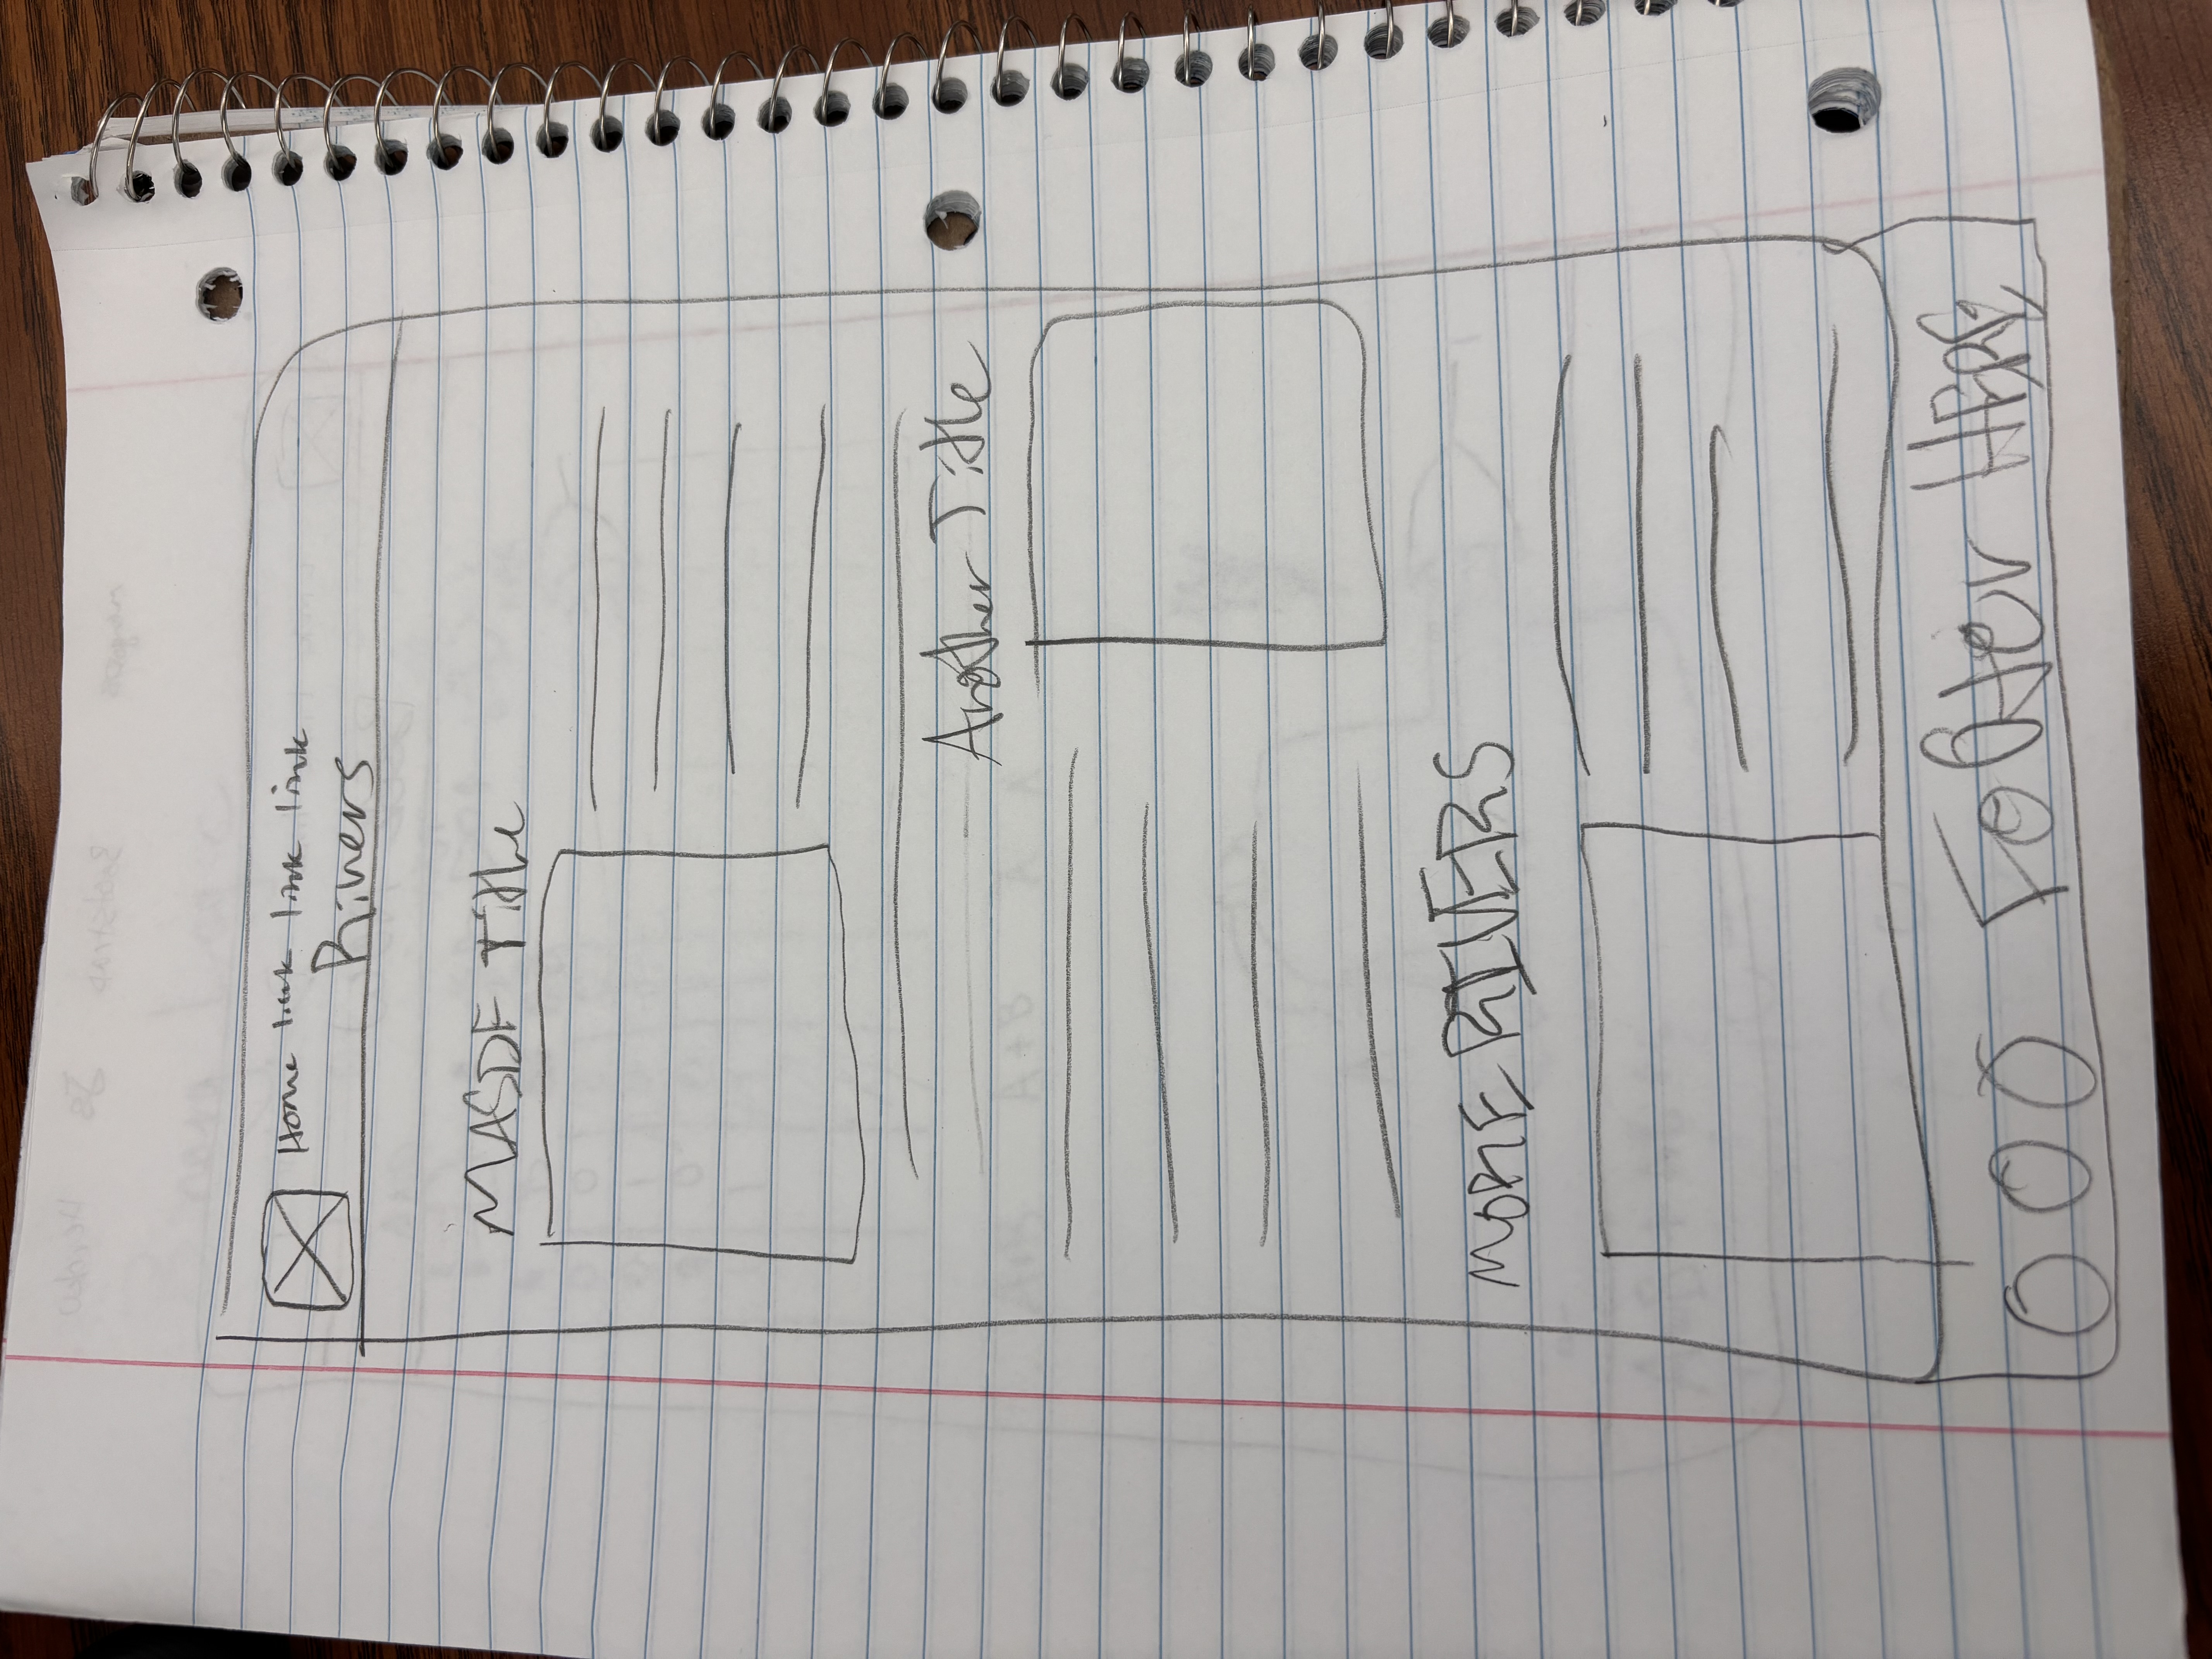 Home link link link
Rivers
MASDF Title
Another Title
MORE RIVERS
Footer HERE